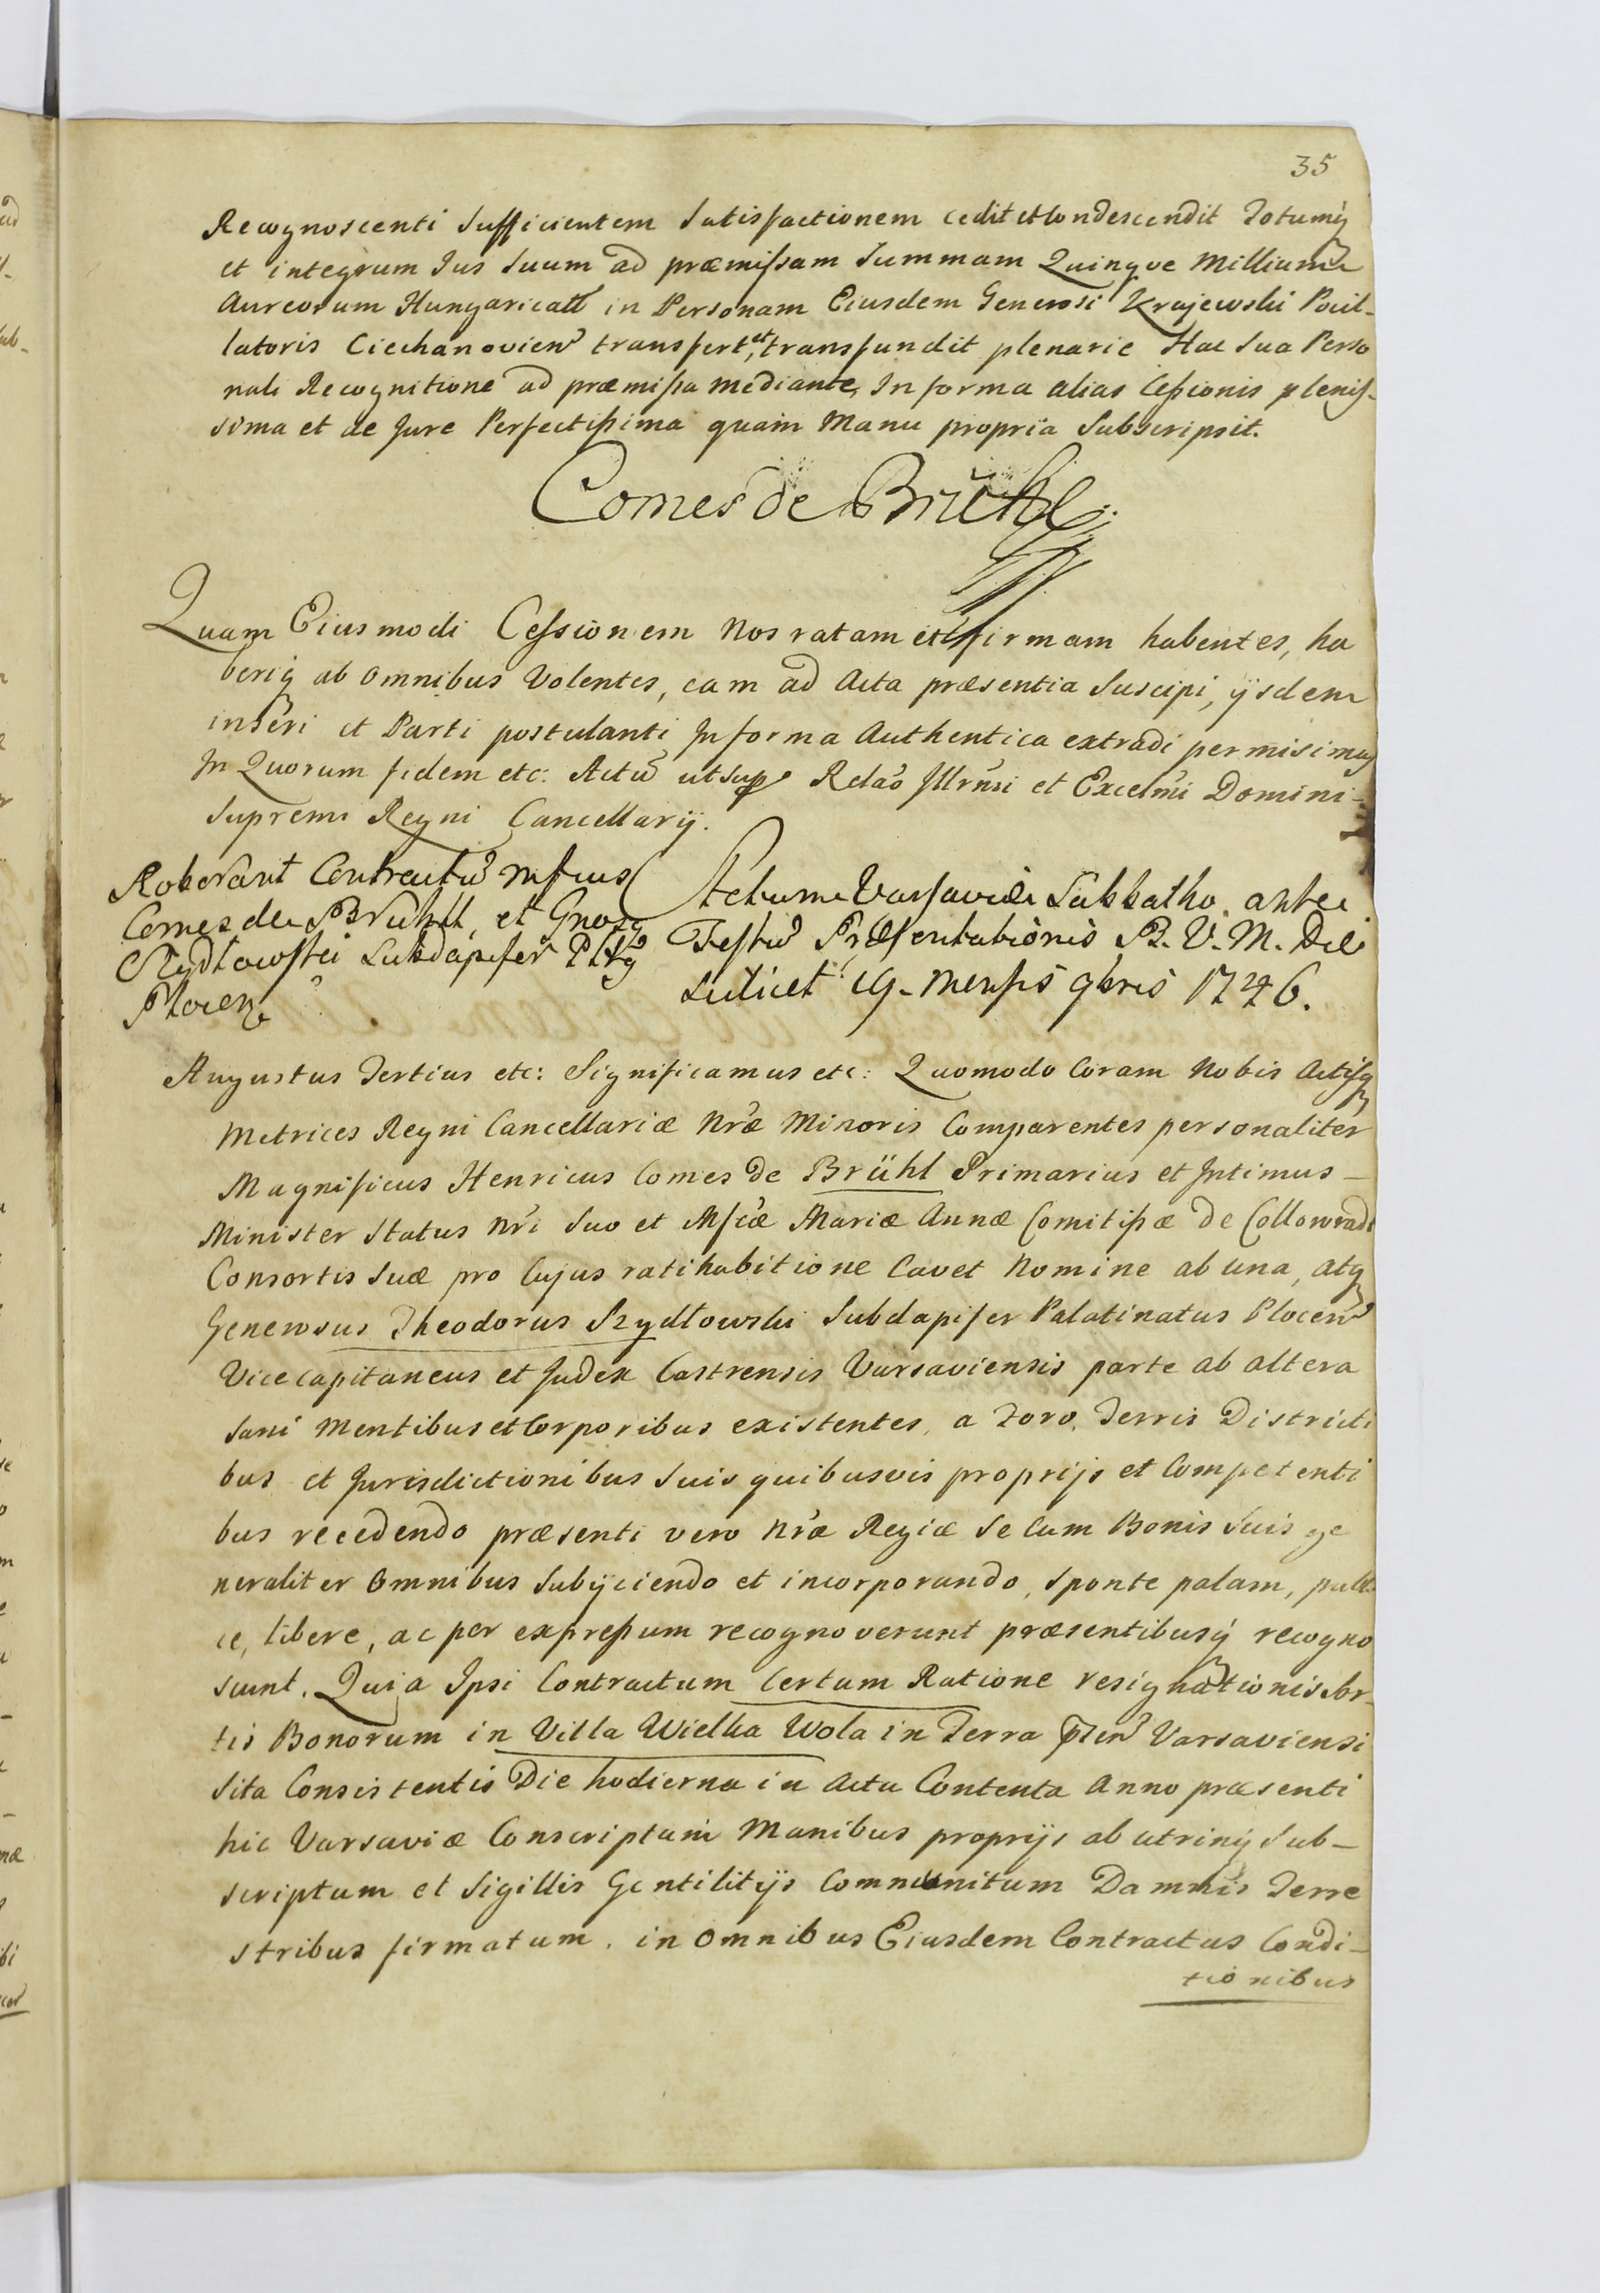 35
Recognoscenti Sufficientem Satisfactionem cedit et Condescendit Totumq
et integrum Jus Suum ad præmissam Summam Quinqve Millium
Aureorum Hungaricall in Personam Eiusdem Generosi Krajewski Pocil-
latoris Ciechanovien transfert et transfundit plenarie Hac Sua Perso
nali Recognitione ad præmissa mediante, In forma alias Cessionis plenis-
sima et de Jure Perfectissima quam Manu propria Subscripsit.
Comes de Brühl
Quam Eiusmodi Cessionem Nos ratam et firmam habentes, ha
beriq ab Omnibus Volentes, eam ad Acta præsentia Suscipi, ijsdem
inseri et Parti postulanti In forma Authentica extradi permisimus
In Quorum fidem etc: Actu ut Sup Relao Illrmi et Excelmi Domini
Supremi Regni Cancellarij.
Roborant Contractu Mfcus
Comes de Brühll, et Gnosq
Szydłowski Subdapifer Pltq
Plocen
Actum Varsaviæ Sabbatho ante
Festu Præsentationis B. V. M. Die
scilicet 19. Mensis 9bris 1746.
Augustus Tertius etc: Significamus etc: Quomodo Coram Nobis Actisq
Metrices Regni Cancellariæ Nræ Minoris Comparentes personaliter
Magnificus Henricus Comes de Brühl Primarius et Intimus
Minister Status Nri Suo et Mfcæ Mariæ Annæ Comitissæ de Collowradt
Consortis Suæ pro Cujus ratihabitione Cavet Nomine ab una, atq
Generosus Theodorus Szydłowski Subdapifer Palatinatus Plocen
Vicecapitaneus et Judex Castrensis Varsaviensis parte ab altera
Sani Mentibus et Corporibus existentes, a Foro, Terris Districti
bus et Jurisdictionibus Suis quibusvis proprijs et Competenti
bus recedendo præsenti vero Nræ Regiæ Se Cum Bonis Suis ge
neraliter Omnibus Subijciendo et incorporando, sponte palam, publi
ce, libere, ac per expressum recognoverunt præsentibusq recogno
scunt, Quia Ipsi Contractum Certum Ratione resignationis Sor
tis Bonorum in Villa Wielka Wola in Terra Varsaviensi
Sita Consistentis Die hodierna in Actu Contenta Anno præsenti
hic Varsaviæ Conscriptum Manibus proprijs ab utrinq Sub-
scriptum et Sigillis Gentilitijs Communitum Damnis Terre
stribus firmatum, in Omnibus Eiusdem Contractus Condi-
tionibus